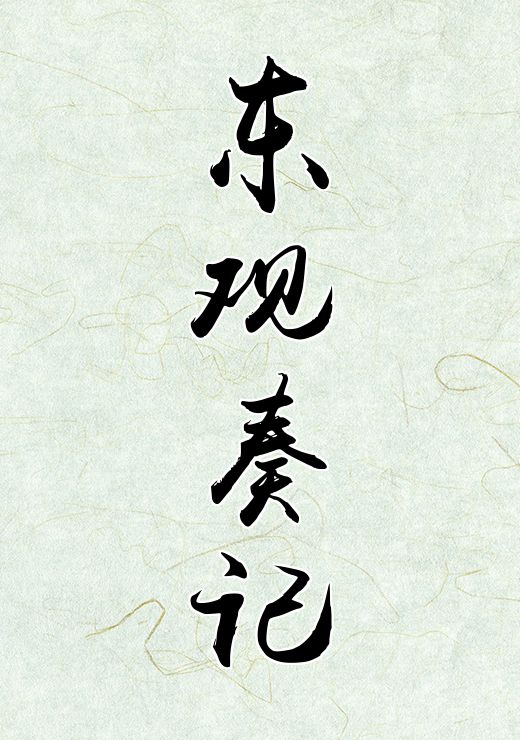 东观奏记